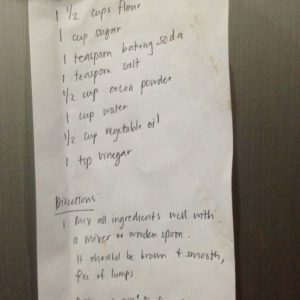 1 1/2 cups flour
1 cup sugar
1 teaspoon baking soda
1 teaspoon salt
1/2 cup cocoa powder
1 cup water
1/2 cup vegetable oil
1 tsp vinegar
Directions
1 Mix all ingredients well with
a mixer or wooden spoon.
It should be brown + smooth,
free of lumps